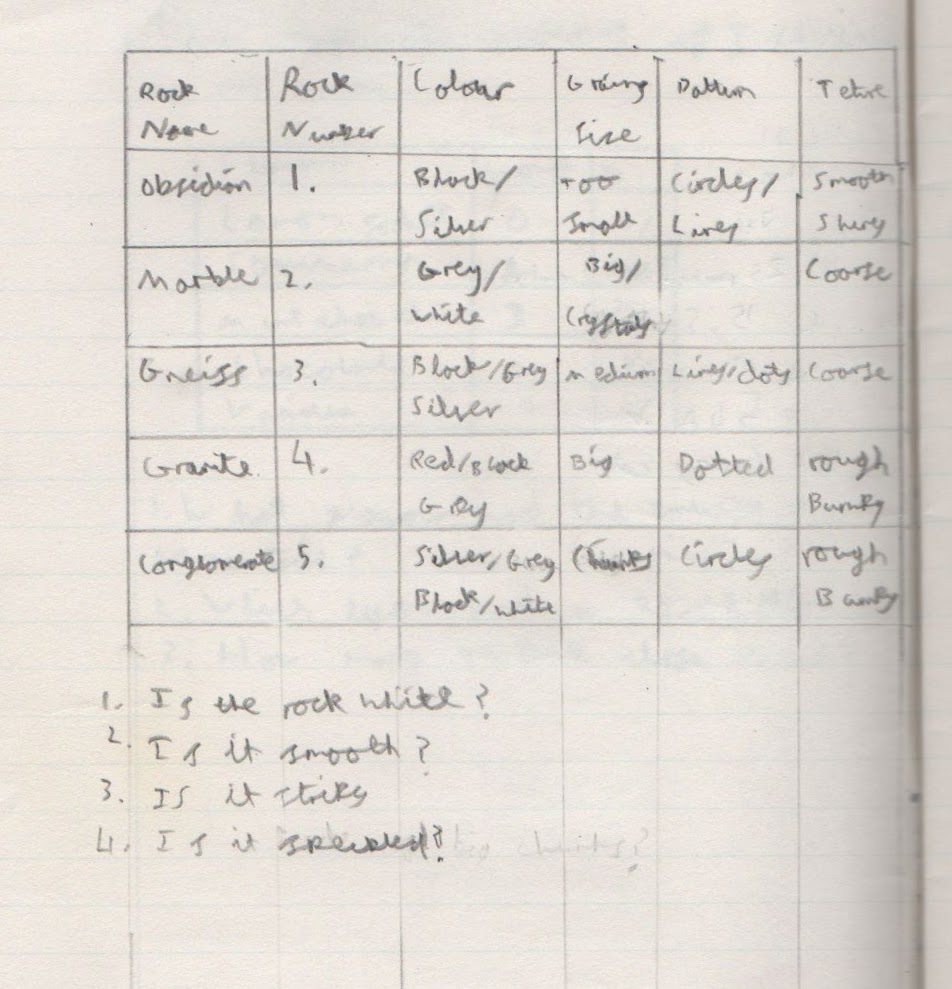 Rock Name | Rock Number | Colour | Grains Size | Pattern | Texture
Obsidian | 1. | Black/ Silver | Too Small | Circles/ Lines | Smooth Shiny
Marble | 2. | Grey/ White | Big/ Crystals | | Coarse
Gneiss | 3. | Black/Grey Silver | medium | Lines/dots | Coarse
Granite. | 4. | Red/Black Grey | Big | Dotted | rough Bumpy
Conglomerate | 5. | Silver/Grey Black/white | Chunks | Circles | rough Bumpy
1. Is the rock white?
2. Is it smooth?
3. Is it stripy
4. Is it speckled? big chunks?